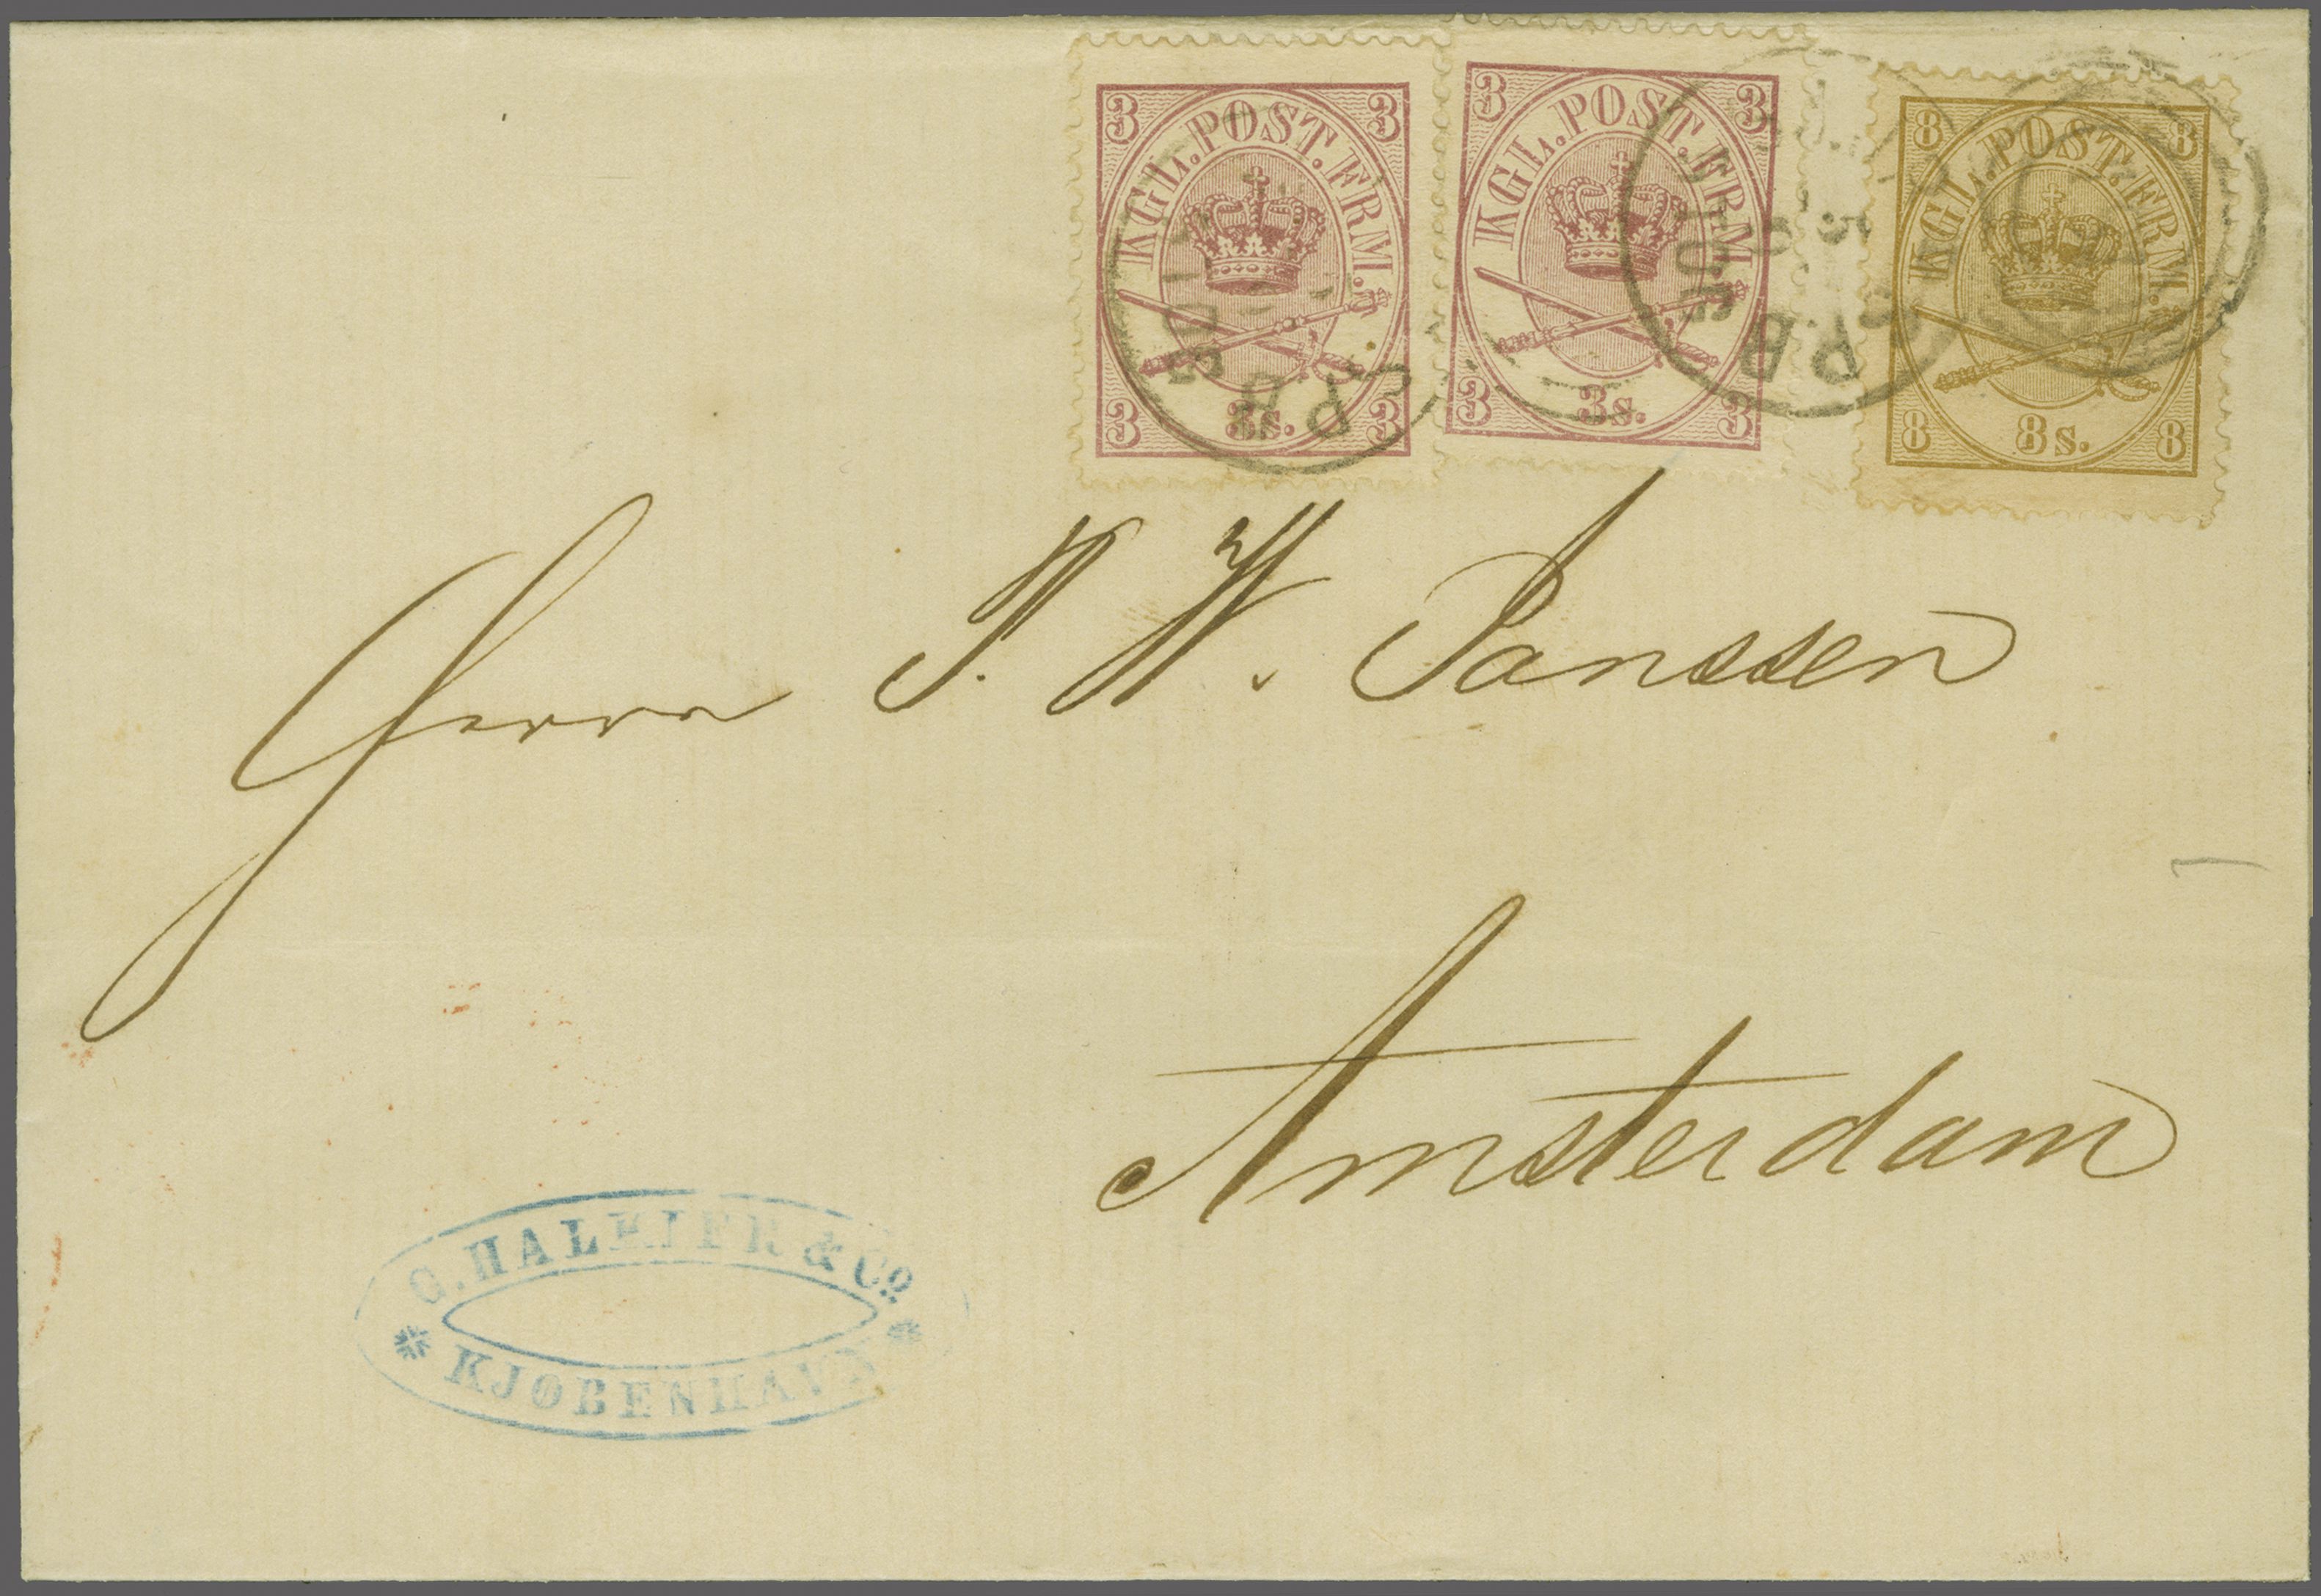 3 3
KGL. POST. FRM.
3 3s. 3
3 3
KGL. POST. FRM.
3 3s. 3
8 8
KGL. POST. FRM.
8 8s. 8
Herrn P. W. Janssen
Amsterdam
G. HALKIER & Co.
* KJØBENHAVN *